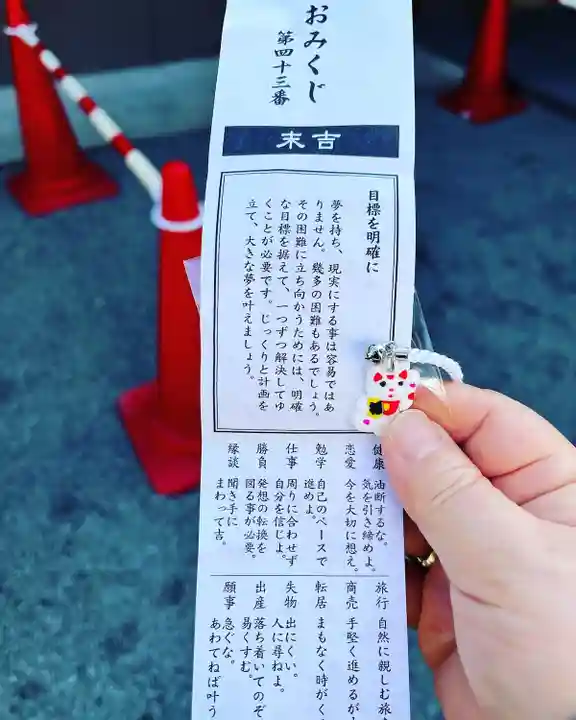 おみくじ
第四十三番
末吉
目標を明確に
夢を持ち、現実にする事は容易ではあ
りません。幾多の困難もあるでしょう。
その困難に立ち向かうためには、明確
な目標を据えて、一つずつ解決してゆ
くことが必要です。じっくりと計画を
立て、大きな夢を叶えましょう。
健康 油断するな。
気を引き締めよ。
恋愛 今を大切に想え。
勉学 自己のペースで
進めよ。
仕事 周りに合わせず
自分を信じよ。
勝負 発想の転換を
図る事が必要。
縁談 聞き手に
まわって吉。
旅行 自然に親しむ旅
商売 手堅く進めるが
転居 まもなく時がく
失物 出にくい。
人に尋ねよ。
出産 落ち着いてのぞ
易くすむ。
願事 急ぐな。
あわてねば叶う